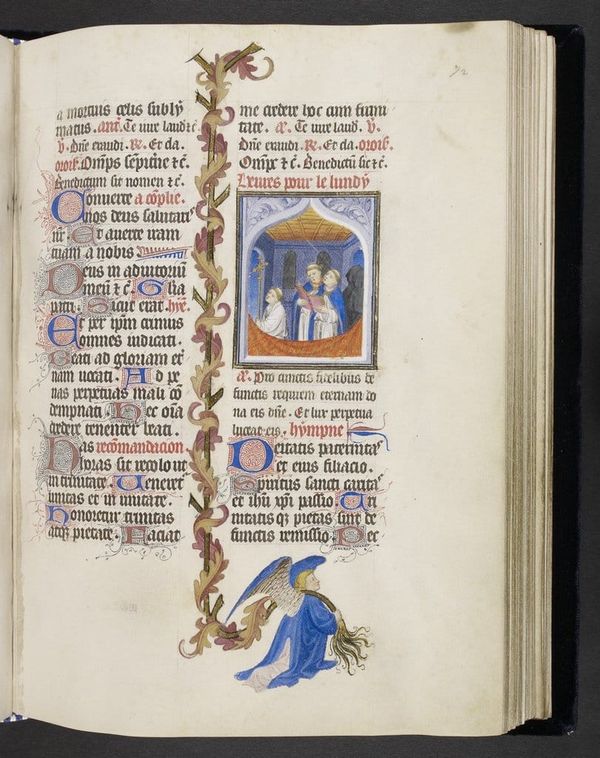 72
a mortuis celis subly
matus. ant. Te iure laud
v. Dne exaudi. R. Et cla.
orois. Omps sepitne
Benedictum sit nomen
Converte a cõplie.
nos deus salutaris
nr. Et averte iram
tuam a nobis
Deus in adiutoriũ
meũ Glia
patri. Sicut erat. hỹe.
Et per ipm crimus
omnes iudicati.
Beati ad gloriam et
nam vocati. Ad pe
nas perpetuas mali cõ
dempnati. Hec oĩa
credere tenentur beati.
Has recõmandacion
horas sic recolo ut
in trinitate. Veneret
unitas et in unitate.
honoretur trinitas
atq pietate. Faciat
me credere hoc cum firmi
tate. Te iure laud. v.
Dne exaudi. R. Et cla. orois.
Benedictũ sit
heures pour le lundy
Pro cunctis fidelibus de
functis requiem eternam do
na eis dñe. Et lux perpetua
luceat eis. hympne
Deitatis paternitas
et eius filiacio.
Spiritus sancti caritas
et ihũ xpi passio. Tri
nitatis q pietas sint de
functis remissio. Nec